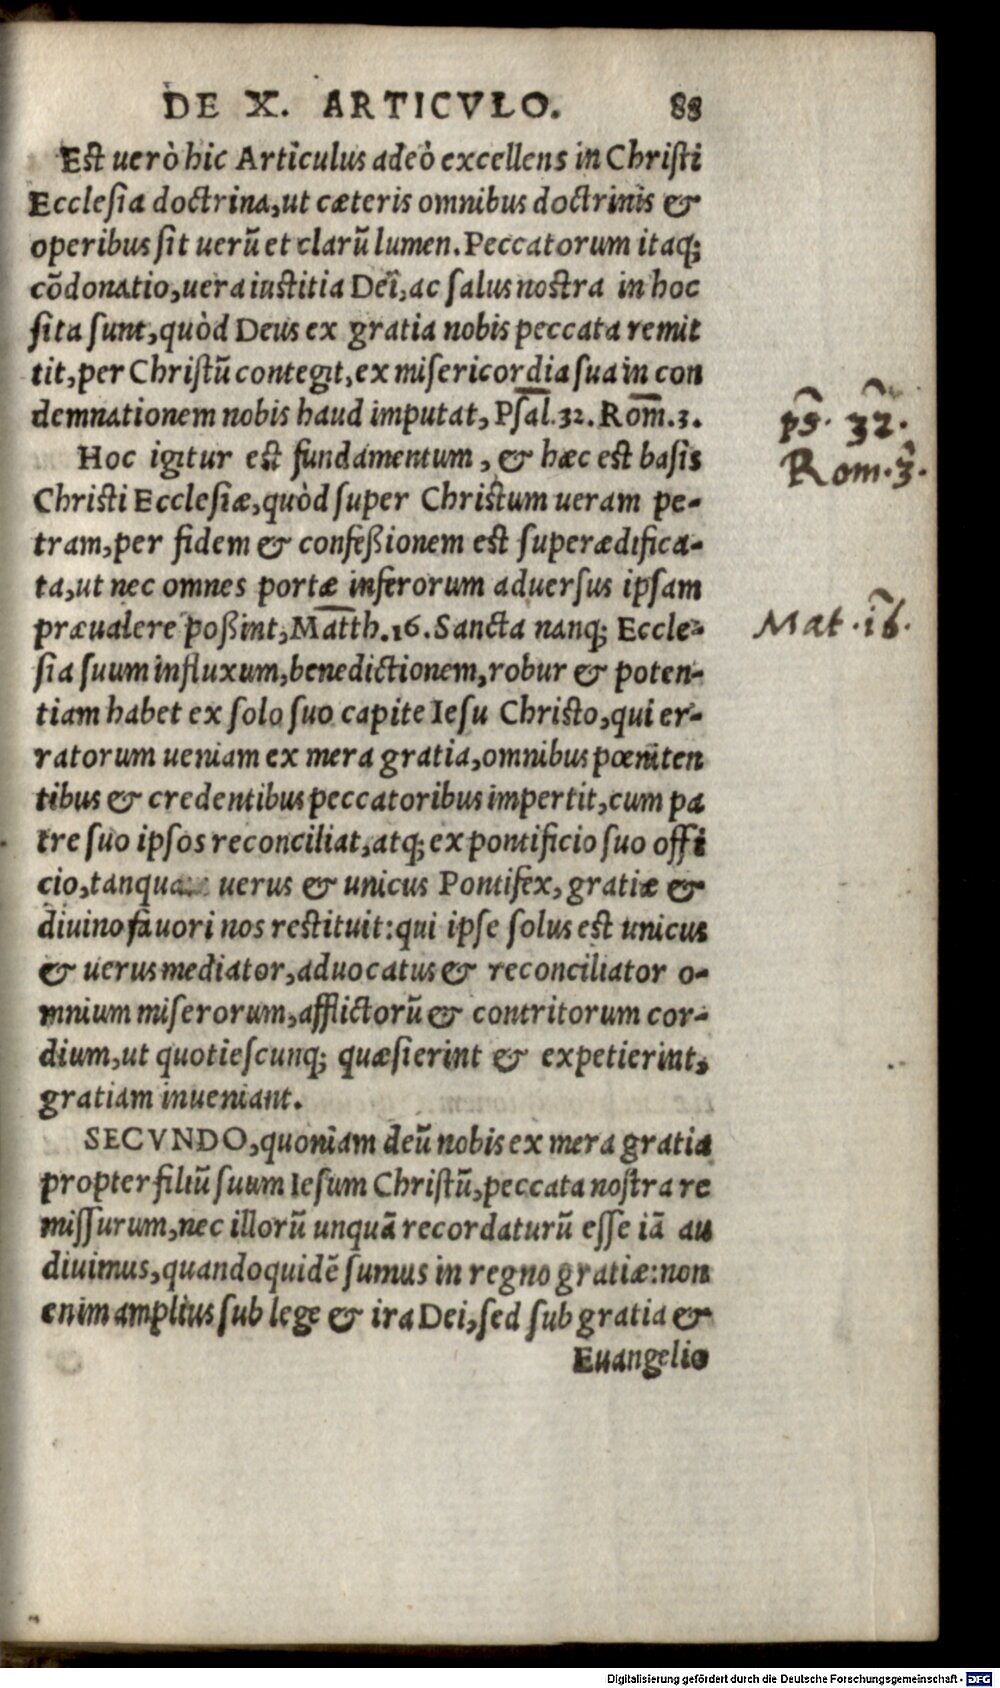 DE X. ARTICVLO. 88
Est uerò hic Articulus adeò excellens in Christi
Ecclesia doctrina, ut cæteris omnibus doctrinis &
operibus sit uerũ et clarũ lumen. Peccatorum itaq;
cõdonatio, uera iustitia Dei, ac salus nostra in hoc
sita sunt, quòd Deus ex gratia nobis peccata remit
tit, per Christũ contegit, ex misericordia sua in con
demnationem nobis haud imputat, Psal. 32. Rom. 3.
ps. 32.
Rom. 3.
Hoc igitur est fundamentum, & hæc est basis
Christi Ecclesiæ, quòd super Christum ueram pe-
tram, per fidem & confeßionem est superædifica-
ta, ut nec omnes portæ inferorum aduersus ipsam
præualere poßint, Matth. 16. Sancta nanq; Eccle-
Mat. 16.
sia suum influxum, benedictionem, robur & poten-
tiam habet ex solo suo capite Iesu Christo, qui er-
ratorum ueniam ex mera gratia, omnibus pœniten
tibus & credentibus peccatoribus impertit, cum pa
tre suo ipsos reconciliat, atq; ex pontificio suo offi
cio, uerus & unicus Pontifex, gratiæ &
diuino fauori nos restituit: qui ipse solus est unicus
& uerus mediator, aduocatus & reconciliator o-
mnium miserorum, afflictorũ & contritorum cor-
dium, ut quotiescunq; quæsierint & expetierint,
gratiam inueniant.
SECVNDO, quoniam deũ nobis ex mera gratia
propter filiũ suum Iesum Christũ, peccata nostra re
missurum, nec illorũ unquã recordaturũ esse iã au
diuimus, quandoquidẽ sumus in regno gratiæ: non
enim amplius sub lege & ira Dei, sed sub gratia &
Euangelio
Digitalisierung gefördert durch die Deutsche Forschungsgemeinschaft - DFG